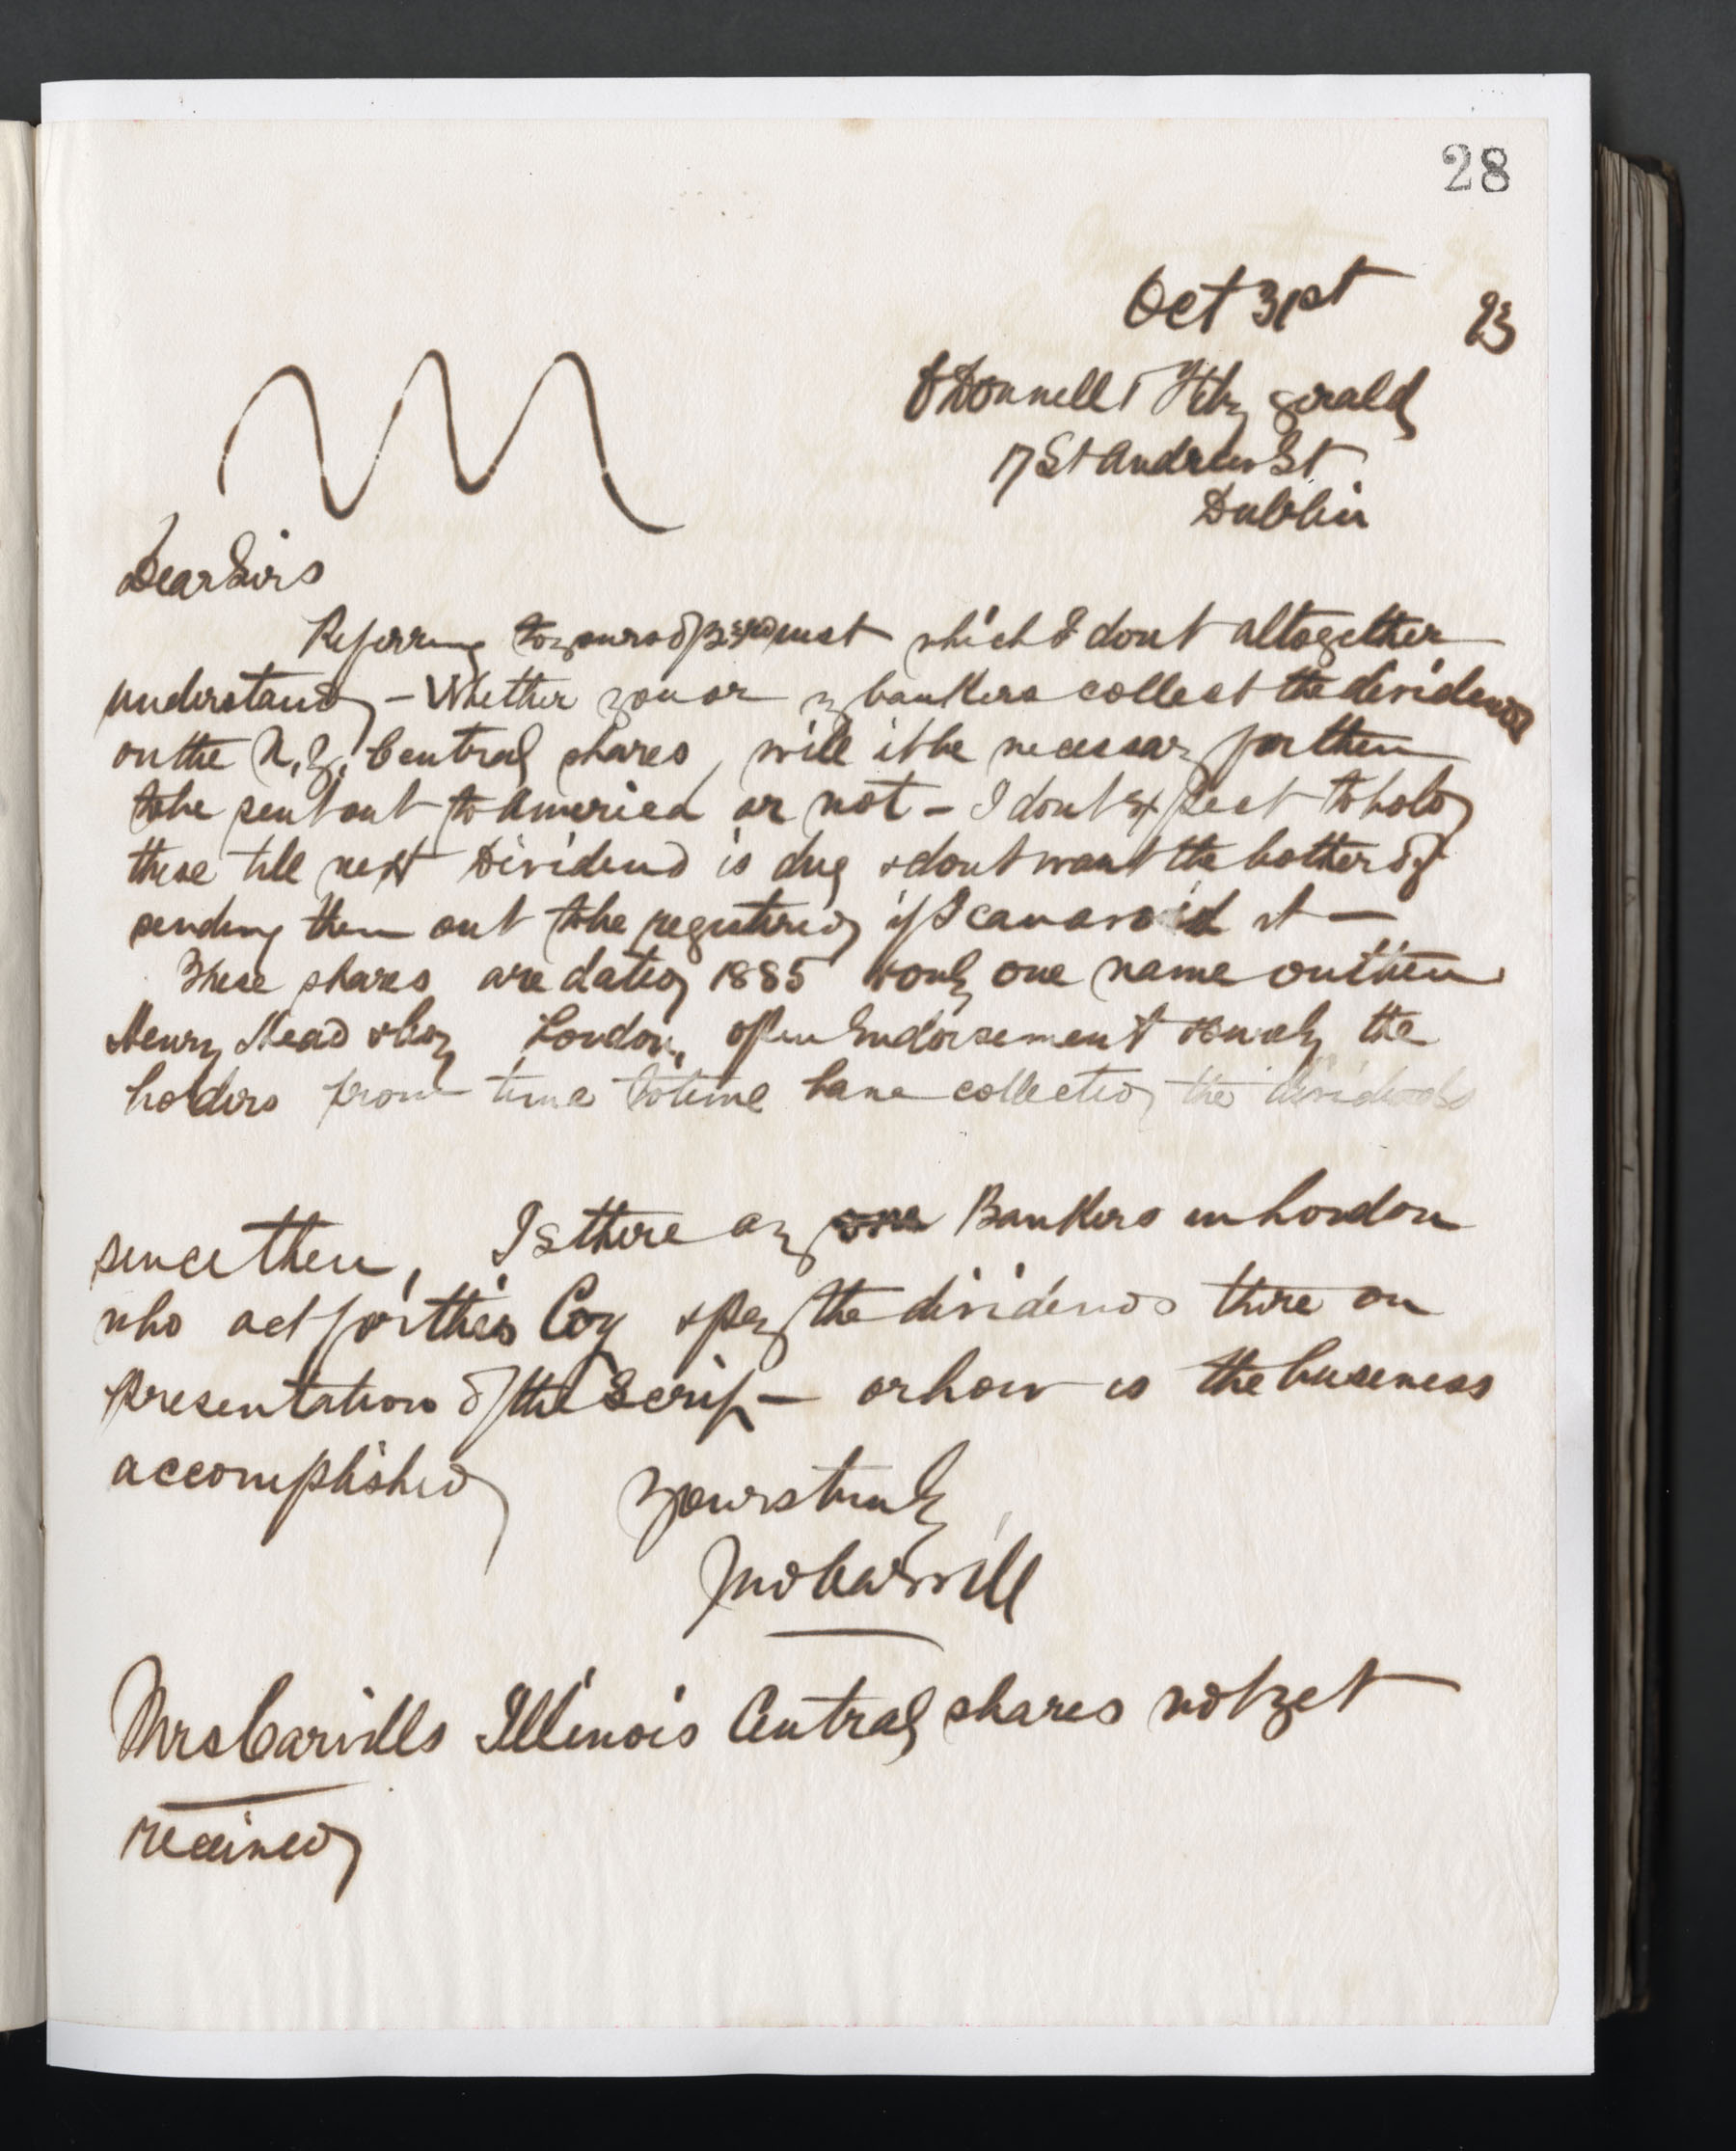 28
Oct 31st 93
O'Donnell & Fitzgerald
17 St Andrew St
Dublin
Dear Sirs
Referring to yours of inst which I dont altogether
understand - Whether you or my bankers collect the dividends
on the N.Y. Central shares, will it be necessary for them
to be sent out to America or not - I dont expect to hold
these till next Dividend is due & dont want the bother of
sending them out to be registered if I can avoid it -
These shares are dated 1885 & only one name on them
Henry Mead London, open Endorsement & surely the
holders from time to time have collected the dividends
since then, Is there any Bankers in London
who act for this Coy & pay the dividends there on
presentation of the Scrip - or how is the business
accomplished
Yours truly
Jno Carvill
Mrs Carvills Illinois Central shares not yet
received